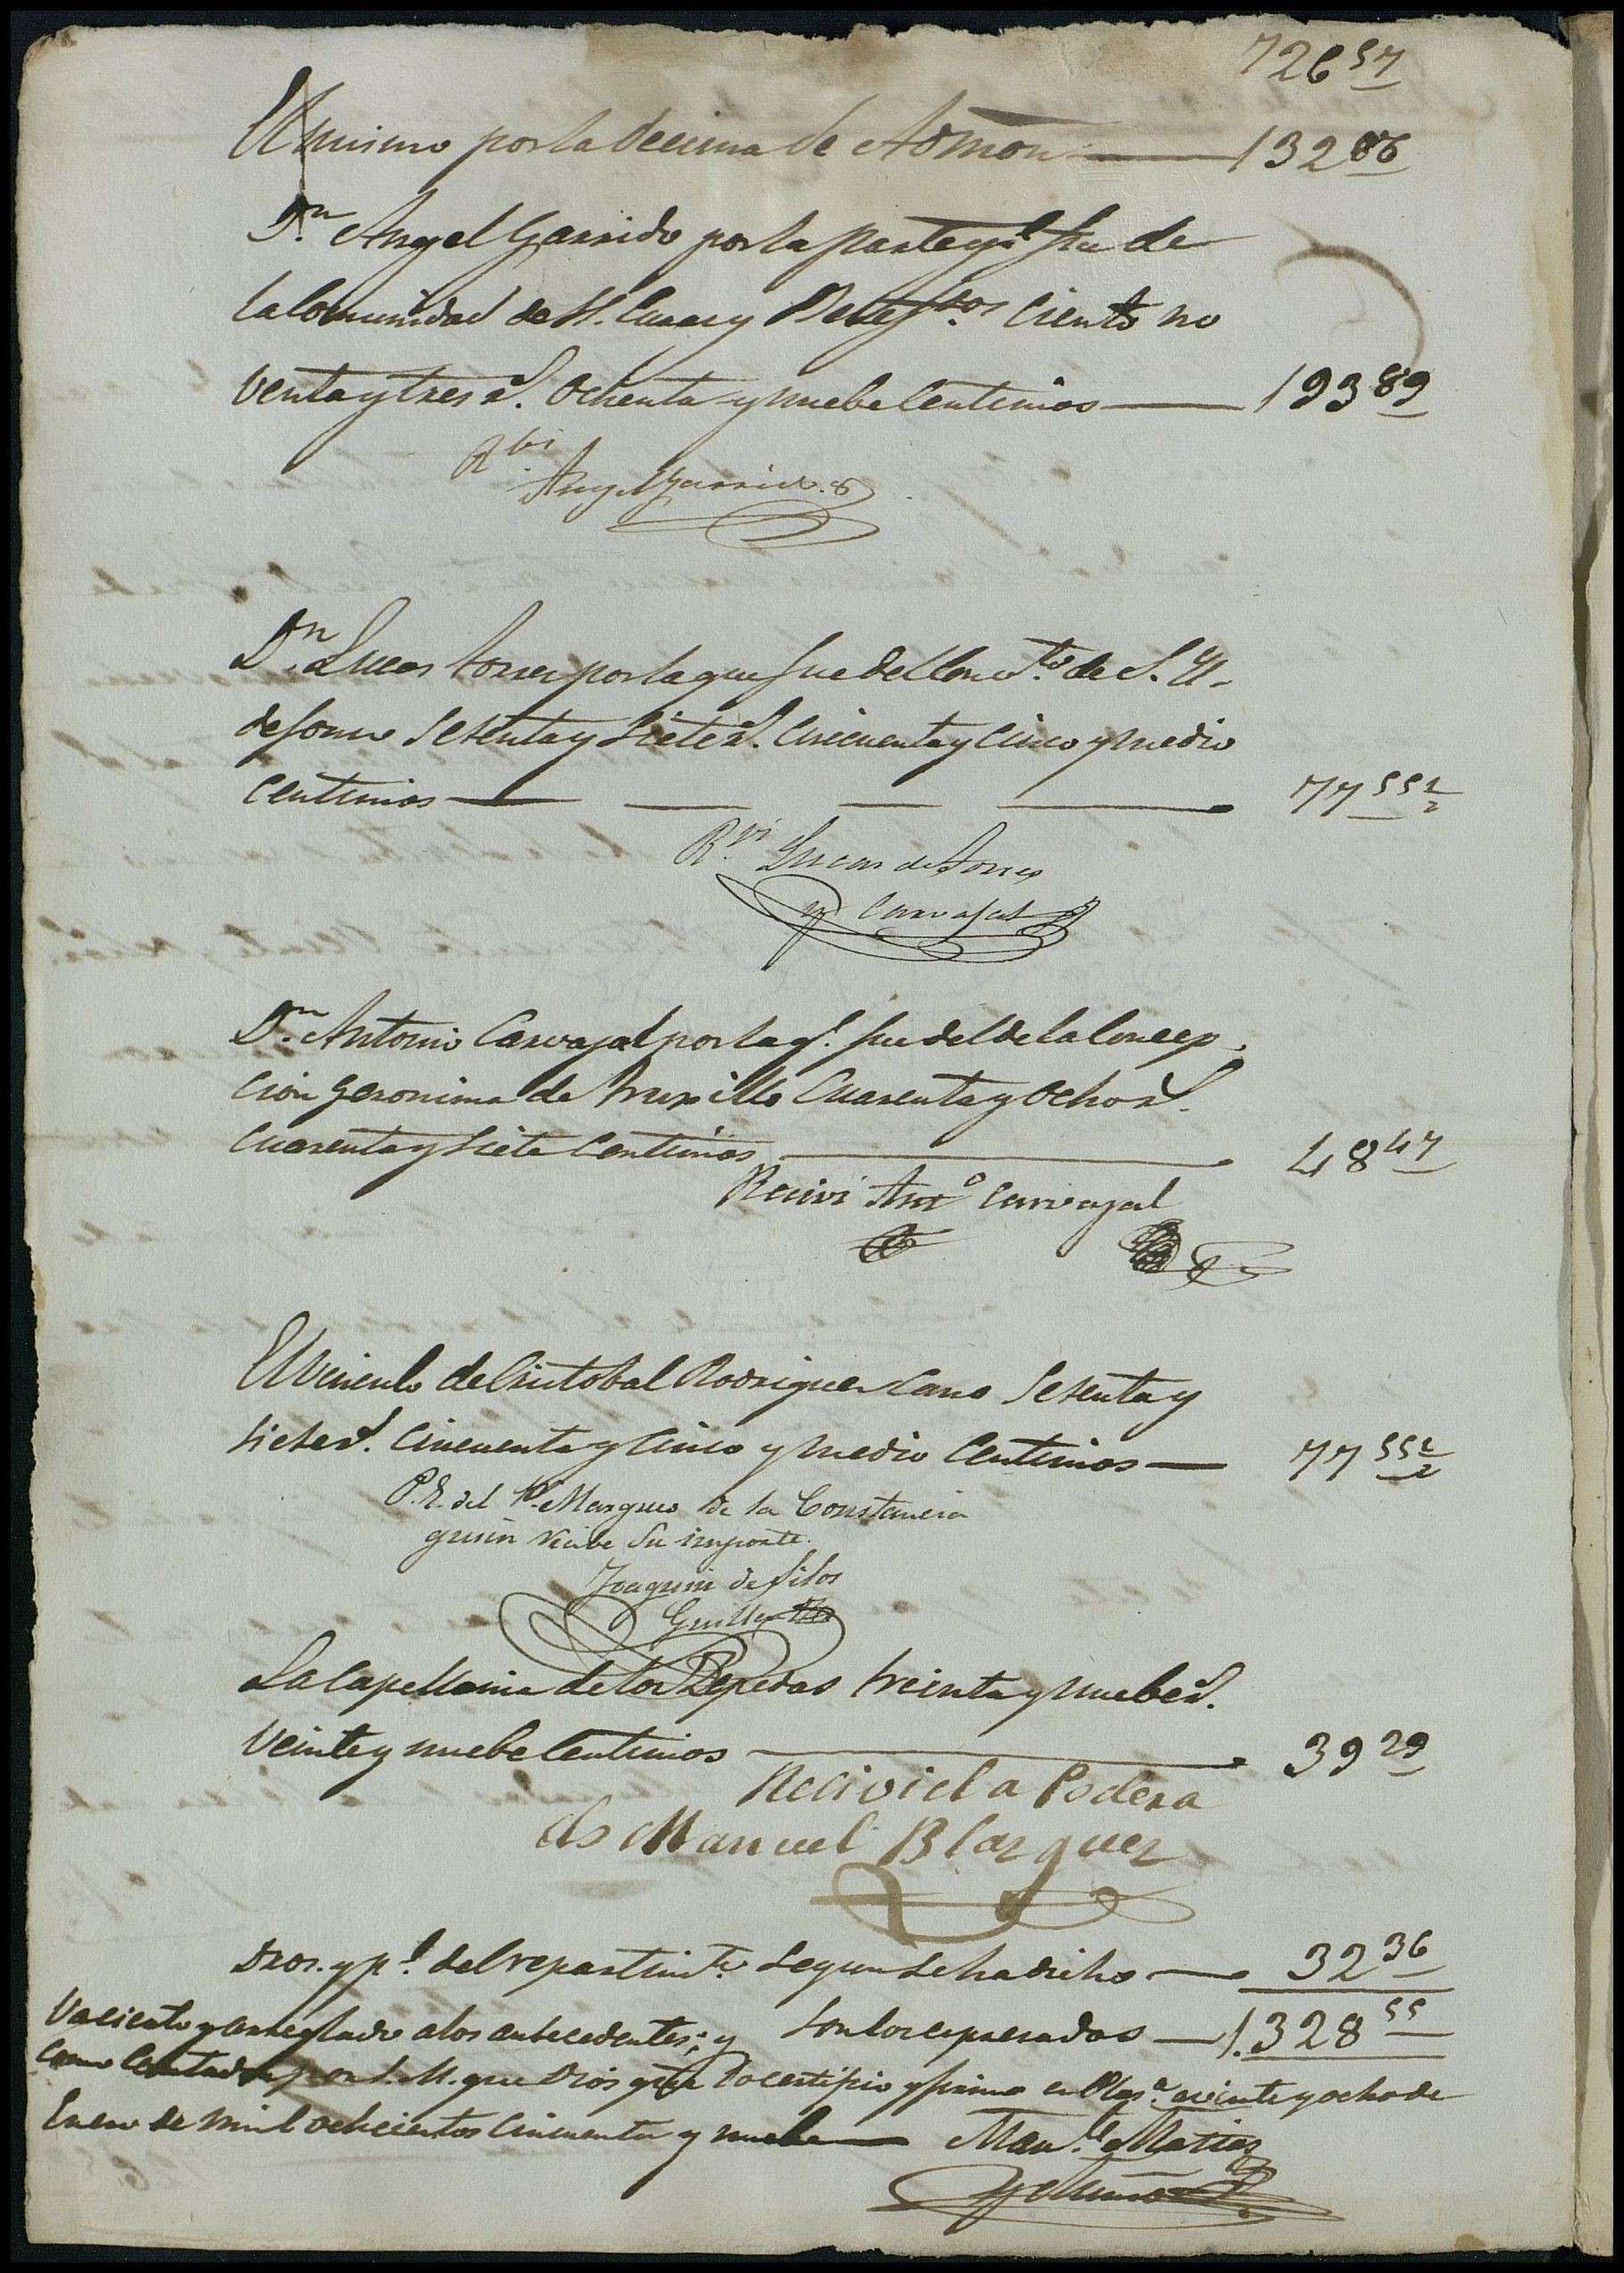 726 57
El mismo por la decima de Admon — 132 86
Dn. Angel Garrido por la parte q.e fue de
la Comunidad de S. Curas y Benefdos Ciento no
venta y tres r.s ochenta y nuebe Centimos — 193 89
Rbi
Angel Garrido
Dn. Lucas Torres por la que fue del Conv.to de S. Yl
defonso Setenta y Siete r.s Cincuenta y Cinco y medio
Centimos — — — — 77 55 1/2
R.vi Lucas de Torres
y Carvajal
Dn. Antonio Carvajal por la q.e fue del de la Concep
cion Geronima de Truxillo Cuarenta y Ocho r.s
Cuarenta y Siete Centimos — 48 47
Recivi Anto Carvajal
El Vinculo de Cristobal Rodriguez Cano Setenta y
Siete r.s Cincuenta y Cinco y medio Centimos — 77 55 1/2
P. E. del S. Marques de la Constancia
quien recibe su importe.
Joaquin de Silos
Guillen
La Capellania de los Zepedas treinta y nuebe r.s
Veinte y nuebe Centimos — 39 29
Recivi el a Podera
do Manuel Blazquez
Dros. y p.l del repartim.to Segun se ha dicho — 32 36
Son los expresados — 1.328 55
Va cierto y arreglado a los antecedentes; y
como Contador por S. M. que Dios gue lo certifico y firmo en Plas.a a veinte y ocho de
Enero de mil ochocientos Cincuenta y nuebe — Man.l Matias